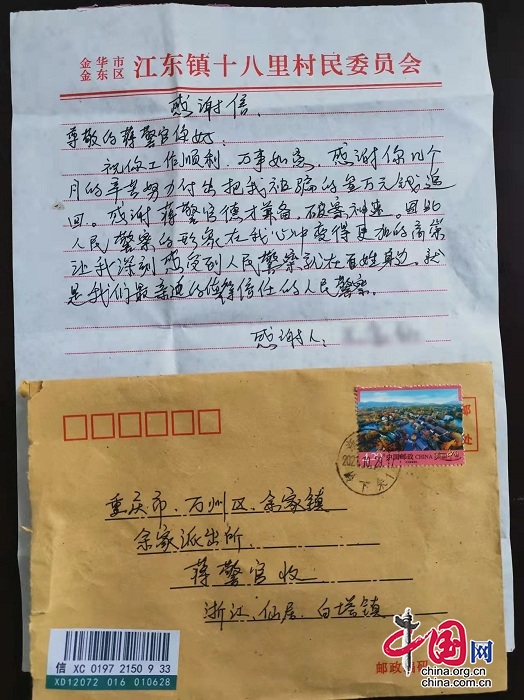 金华市
金东区 江东镇十八里村民委员会
感谢信.
尊敬的蒋警官你好:
祝你工作顺利.万事如意.感谢你几个
月的辛苦努力付出把我被骗的 万元钱追
回。感谢蒋警官德才兼备.破案神速。因此
人民警察的形象在我心中变得更加的高
让我深刻感受到人民警察就在百姓身边.就
是我们最 信任的人民警察。
感谢人:
中国邮政 CHINA
邮
处
重庆市.万州区.余家镇
余家派出所
蒋警官收
浙江.仙居.白塔镇
信 XC 0197 2150 9 33
XD12072 016 010628
邮政
中国网
china.org.cn
china.com.cn